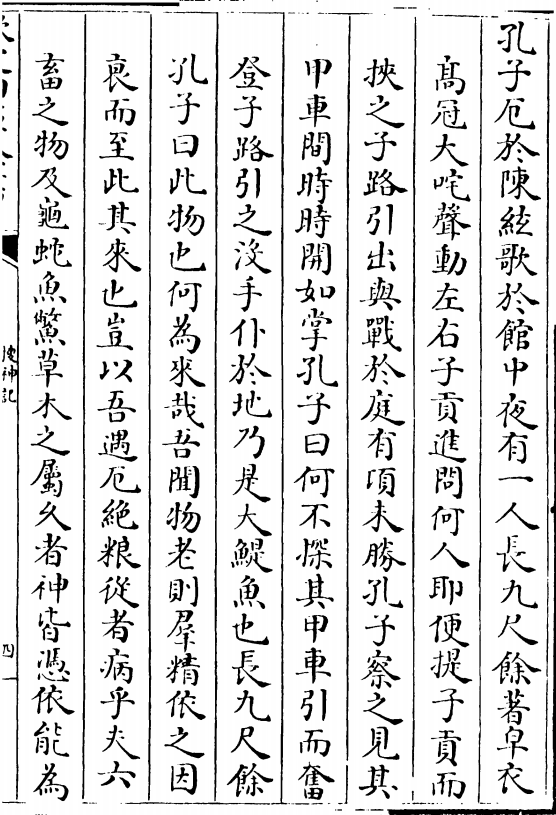 孔子厄於陳絃歌於館中夜有一人長九尺餘著皁衣
髙冠大咤聲動左右子貢進問何人耶便提子貢而
挾之子路引出與戰於庭有項未勝孔子察之見其
甲車間時時開如掌孔子曰何不探其甲車引而奮
登子路引之没手仆於地乃是大鯷魚也長九尺餘
孔子曰此物也何為來哉吾聞物老則羣精依之因
衰而至此其來也豈以吾遇厄絶粮從者病乎夫六
畜之物及龜蛇魚鱉草木之屬久者神皆憑依能為
搜神記
四